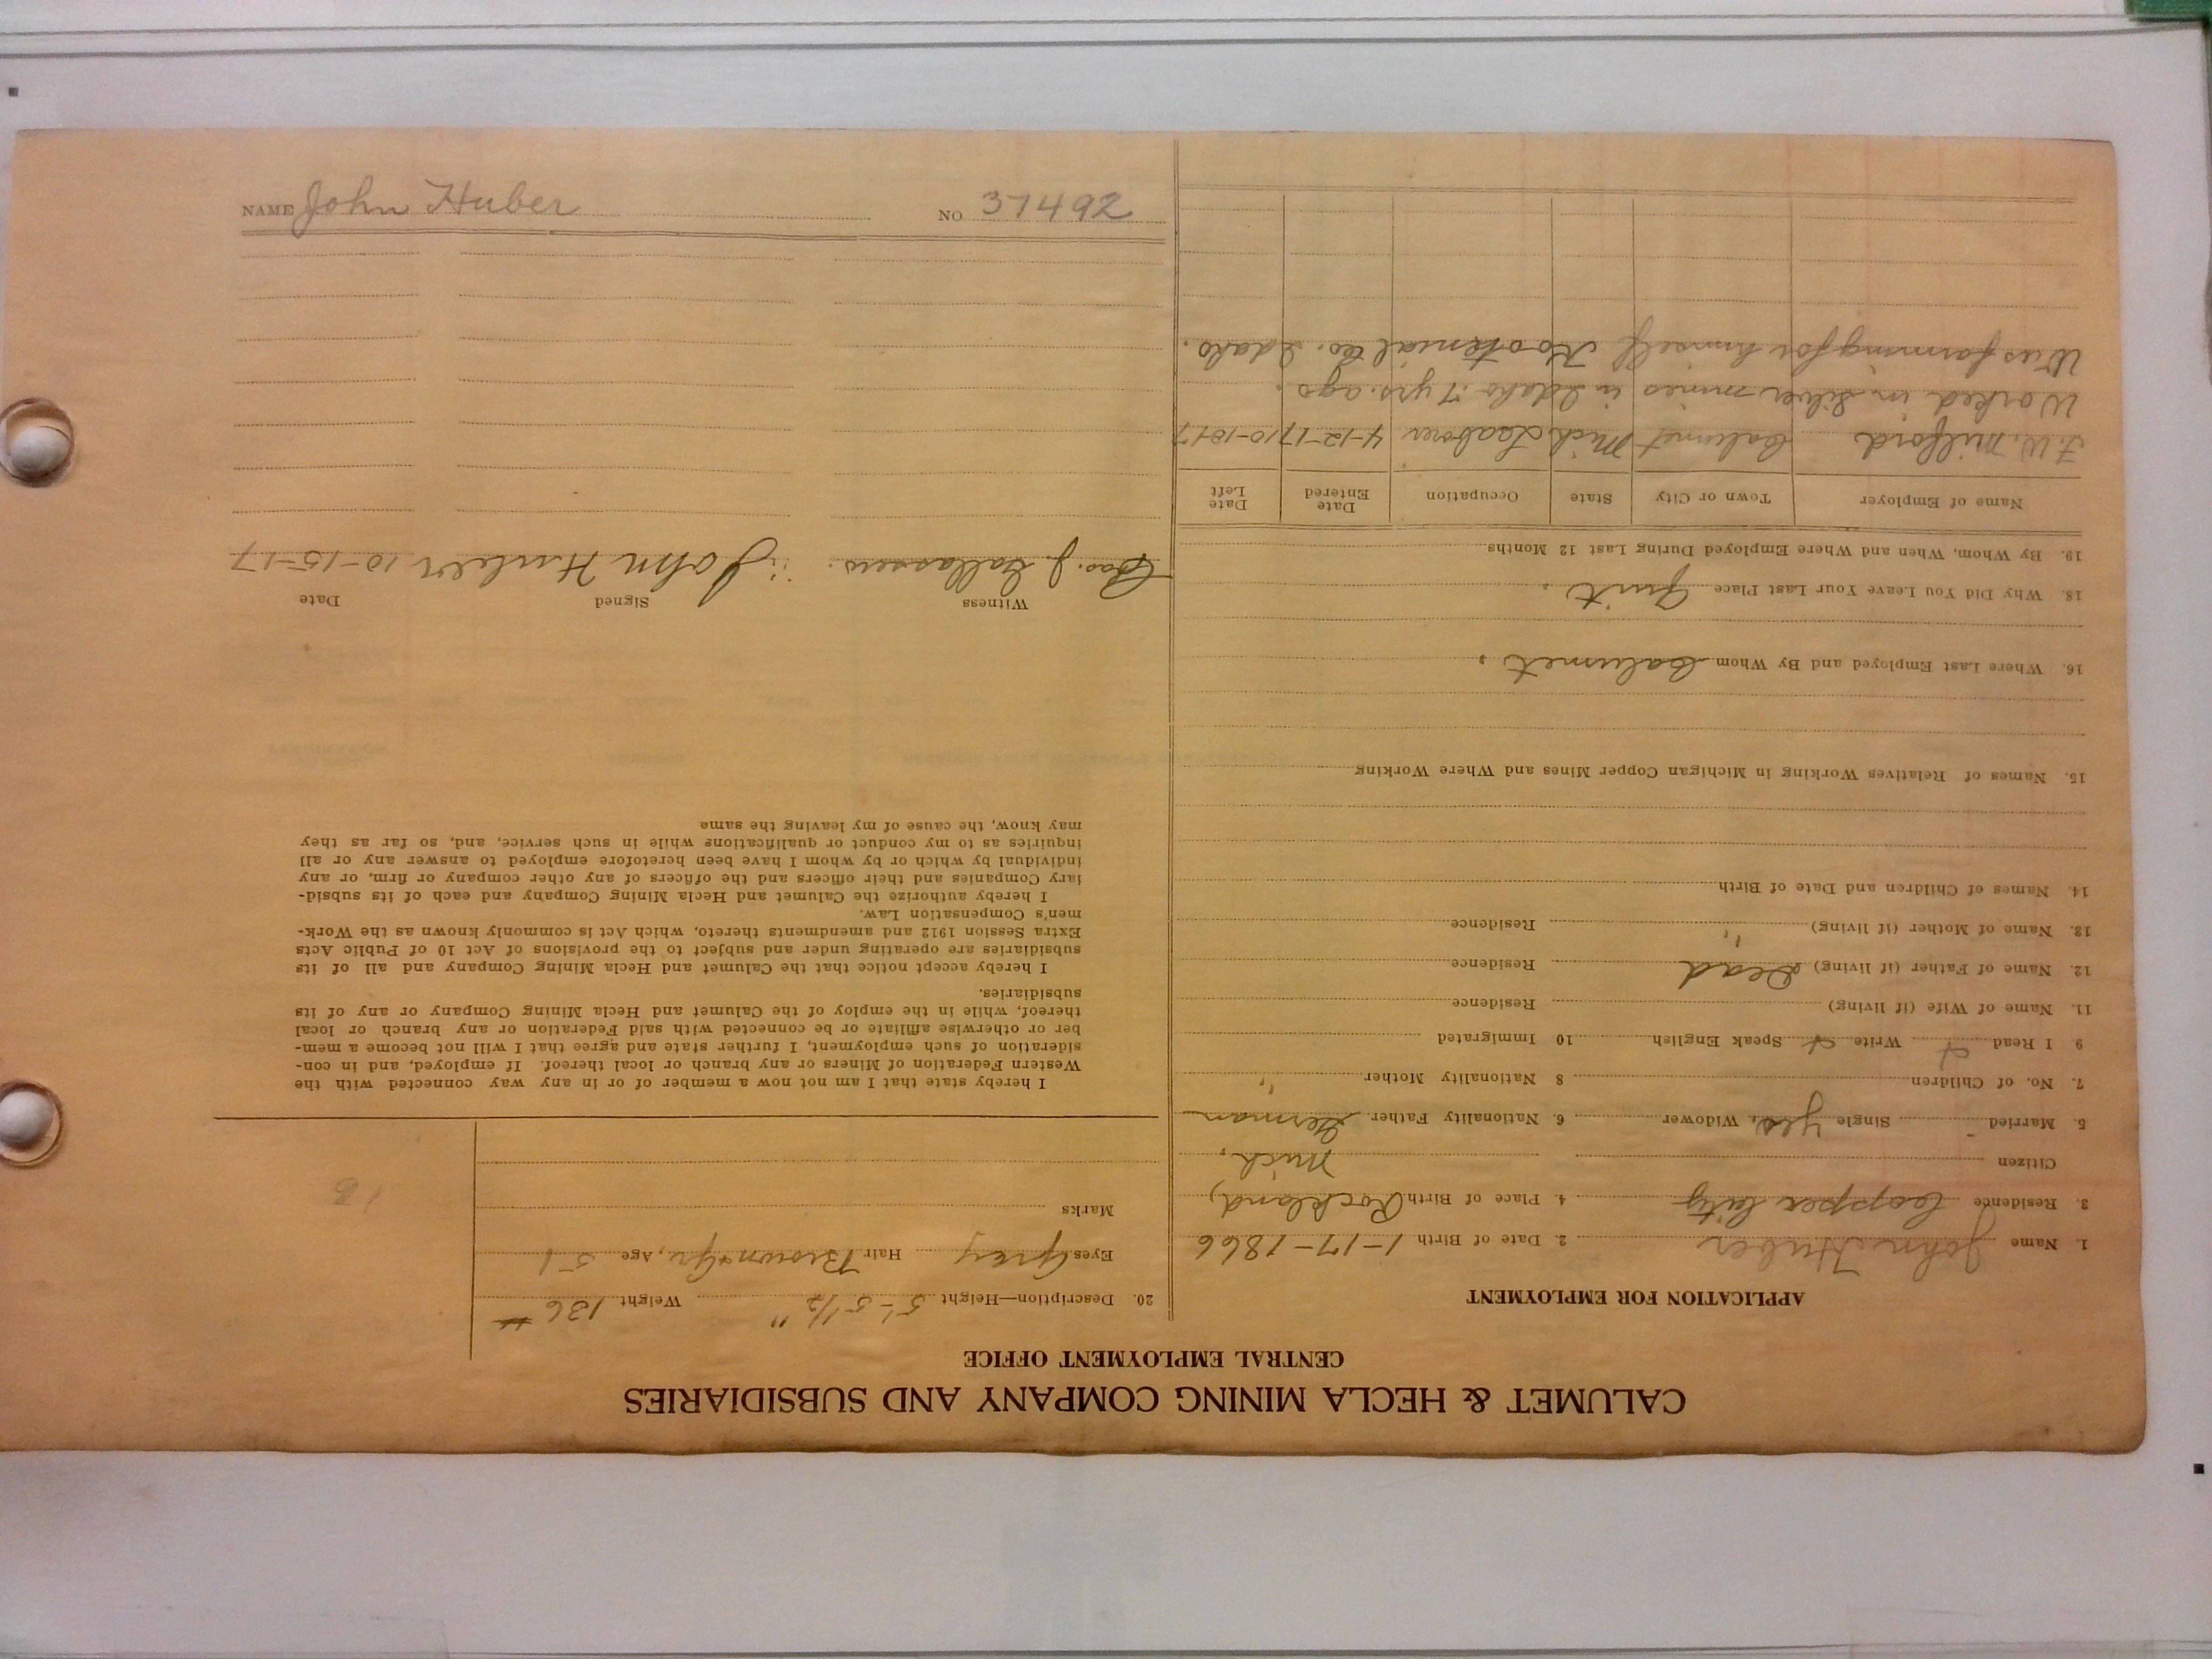 CALUMET & HECLA MINING COMPANY AND SUBSIDIARIES
CENTRAL EMPLOYMENT OFFICE
APPLICATION FOR EMPLOYMENT
1. Name John Huber 2. Date of Birth 1-17-1866
3. Residence Copper City 4. Place of Birth Rockland,
Citizen Mich,
5. Married - Single yes, Widower 6. Nationality Father German
7. No. of Children 8 Nationality Mother "
9 I Read Write Speak English 10 Immigrated
11. Name of Wife (if living) Residence
12. Name of Father (if living) Dead Residence
13. Name of Mother (if living) " Residence
14. Names of Children and Date of Birth
15. Names of Relatives Working in Michigan Copper Mines and Where Working
16. Where Last Employed and By Whom Calumet.
18. Why Did You Leave Your Last Place Quit.
19. By Whom, When and Where Employed During Last 12 Months
Name of Employer Town or City State Occupation Date Entered Date Left
F.W. Milford Calumet Mich Laaborer 4-12-17 10-1817
Worked in Silver mines in Idaho 7 yrs. ago.
Was farming for himself Kootenial Co. Idaho.
20. Description—Height 5'-5 1/2" Weight 136 #
Eyes Grey Hair Brown & Gr, Age 51
Marks
I hereby state that I am not now a member of or in any way connected with the
Western Federation of Miners or any branch or local thereof. If employed, and in con-
sideration of such employment, I further state and agree that I will not become a mem-
ber or otherwise affiliate or be connected with said Federation or any branch or local
thereof, while in the employ of the Calumet and Hecla Mining Company or any of its
subsidiaries.
I hereby accept notice that the Calumet and Hecla Mining Company and all of its
subsidiaries are operating under and subject to the provisions of Act 10 of Public Acts
Extra Session 1912 and amendments thereto, which Act is commonly known as the Work-
men's Compensation Law.
I hereby authorize the Calumet and Hecla Mining Company and each of its subsid-
iary Companies and their officers and the officers of any other company or firm, or any
individual by which or by whom I have been heretofore employed to answer any or all
inquiries as to my conduct or qualifications while in such service, and, so far as they
may know, the cause of my leaving the same
Witness Signed Date
J. John Huber 10-15-17
NAME John Huber NO 37492